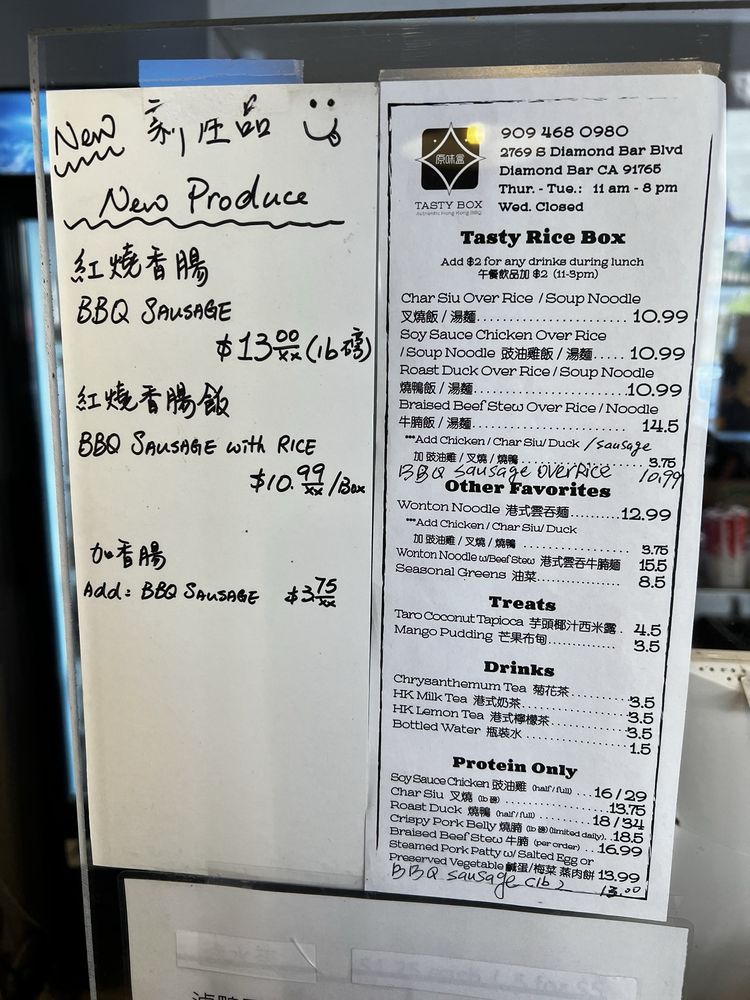 New 新产品
New Produce
紅燒香腸
BBQ SAUSAGE
$13.00/xx (lb磅)
紅燒香腸飯
BBQ SAUSAGE with RICE
$10.99/xx /Box
加香腸
Add: BBQ SAUSAGE $3.75/xx
原味盒
TASTY BOX
Authentic Hong Kong BBQ
909 468 0980
2769 S Diamond Bar Blvd
Diamond Bar CA 91765
Thur. - Tue.: 11 am - 8 pm
Wed. Closed
Tasty Rice Box
Add $2 for any drinks during lunch
午餐飲品加 $2 (11-3pm)
Char Siu Over Rice / Soup Noodle
叉燒飯 / 湯麵 10.99
Soy Sauce Chicken Over Rice
/Soup Noodle 豉油雞飯 / 湯麵 10.99
Roast Duck Over Rice / Soup Noodle
燒鴨飯 / 湯麵 10.99
Braised Beef Stew Over Rice / Noodle
牛腩飯 / 湯麵 14.5
***Add Chicken / Char Siu/ Duck /sausage
加 豉油雞 / 叉燒 / 燒鴨 3.75
BBQ sausage over Rice 10.99
Other Favorites
Wonton Noodle 港式雲吞麵 12.99
***Add Chicken / Char Siu/ Duck
加 豉油雞 / 叉燒 / 燒鴨 3.75
Wonton Noodle w/Beef Stew 港式雲吞牛腩麵 15.5
Seasonal Greens 油菜 8.5
Treats
Taro Coconut Tapioca 芋頭椰汁西米露 4.5
Mango Pudding 芒果布甸 3.5
Drinks
Chrysanthemum Tea 菊花茶 3.5
HK Milk Tea 港式奶茶 3.5
HK Lemon Tea 港式檸檬茶 3.5
Bottled Water 瓶裝水 1.5
Protein Only
Soy Sauce Chicken 豉油雞 (half / full) 16 / 29
Char Siu 叉燒 (lb 磅) 13.75
Roast Duck 燒鴨 (half / full) 18 / 34
Crispy Pork Belly 燒腩 (lb 磅) (limited daily) 18.5
Braised Beef Stew 牛腩 (per order) 16.99
Steamed Pork Patty w/ Salted Egg or
Preserved Vegetable 鹹蛋/梅菜 蒸肉餅 13.99
BBQ sausage (lb) 13.00